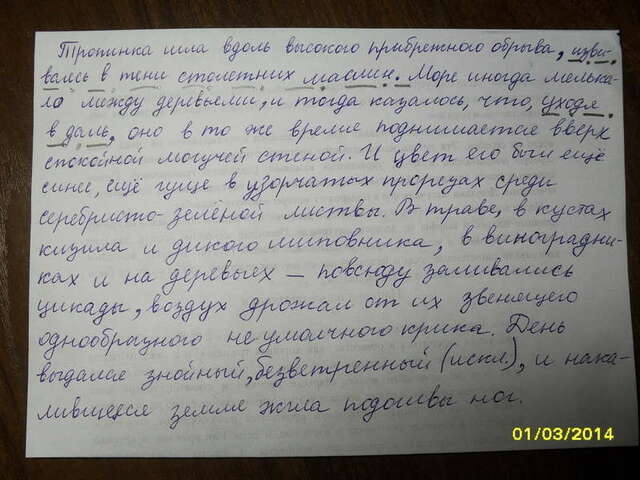 Тропинка шла вдоль высокого прибрежного обрыва, изви-
ваясь в тени столетних маслин. Море иногда мелька-
ло между деревьями, и тогда казалось, что, уходя
в даль, оно в то же время поднимается вверх
спокойной могучей стеной. И цвет его был ещё
синее, ещё гуще в узорчатых прорезах среди
серебристо-зелёной листвы. В траве, в кустах
кизила и дикого шиповника, в виноградни-
ках и на деревьях – повсюду заливались
цикады, воздух дрожал от их звенящего
однообразного неумолчного крика. День
выдался знойный, безветренный (искл), и нака-
лившееся земля жгла подошвы ног.
01/03/2014